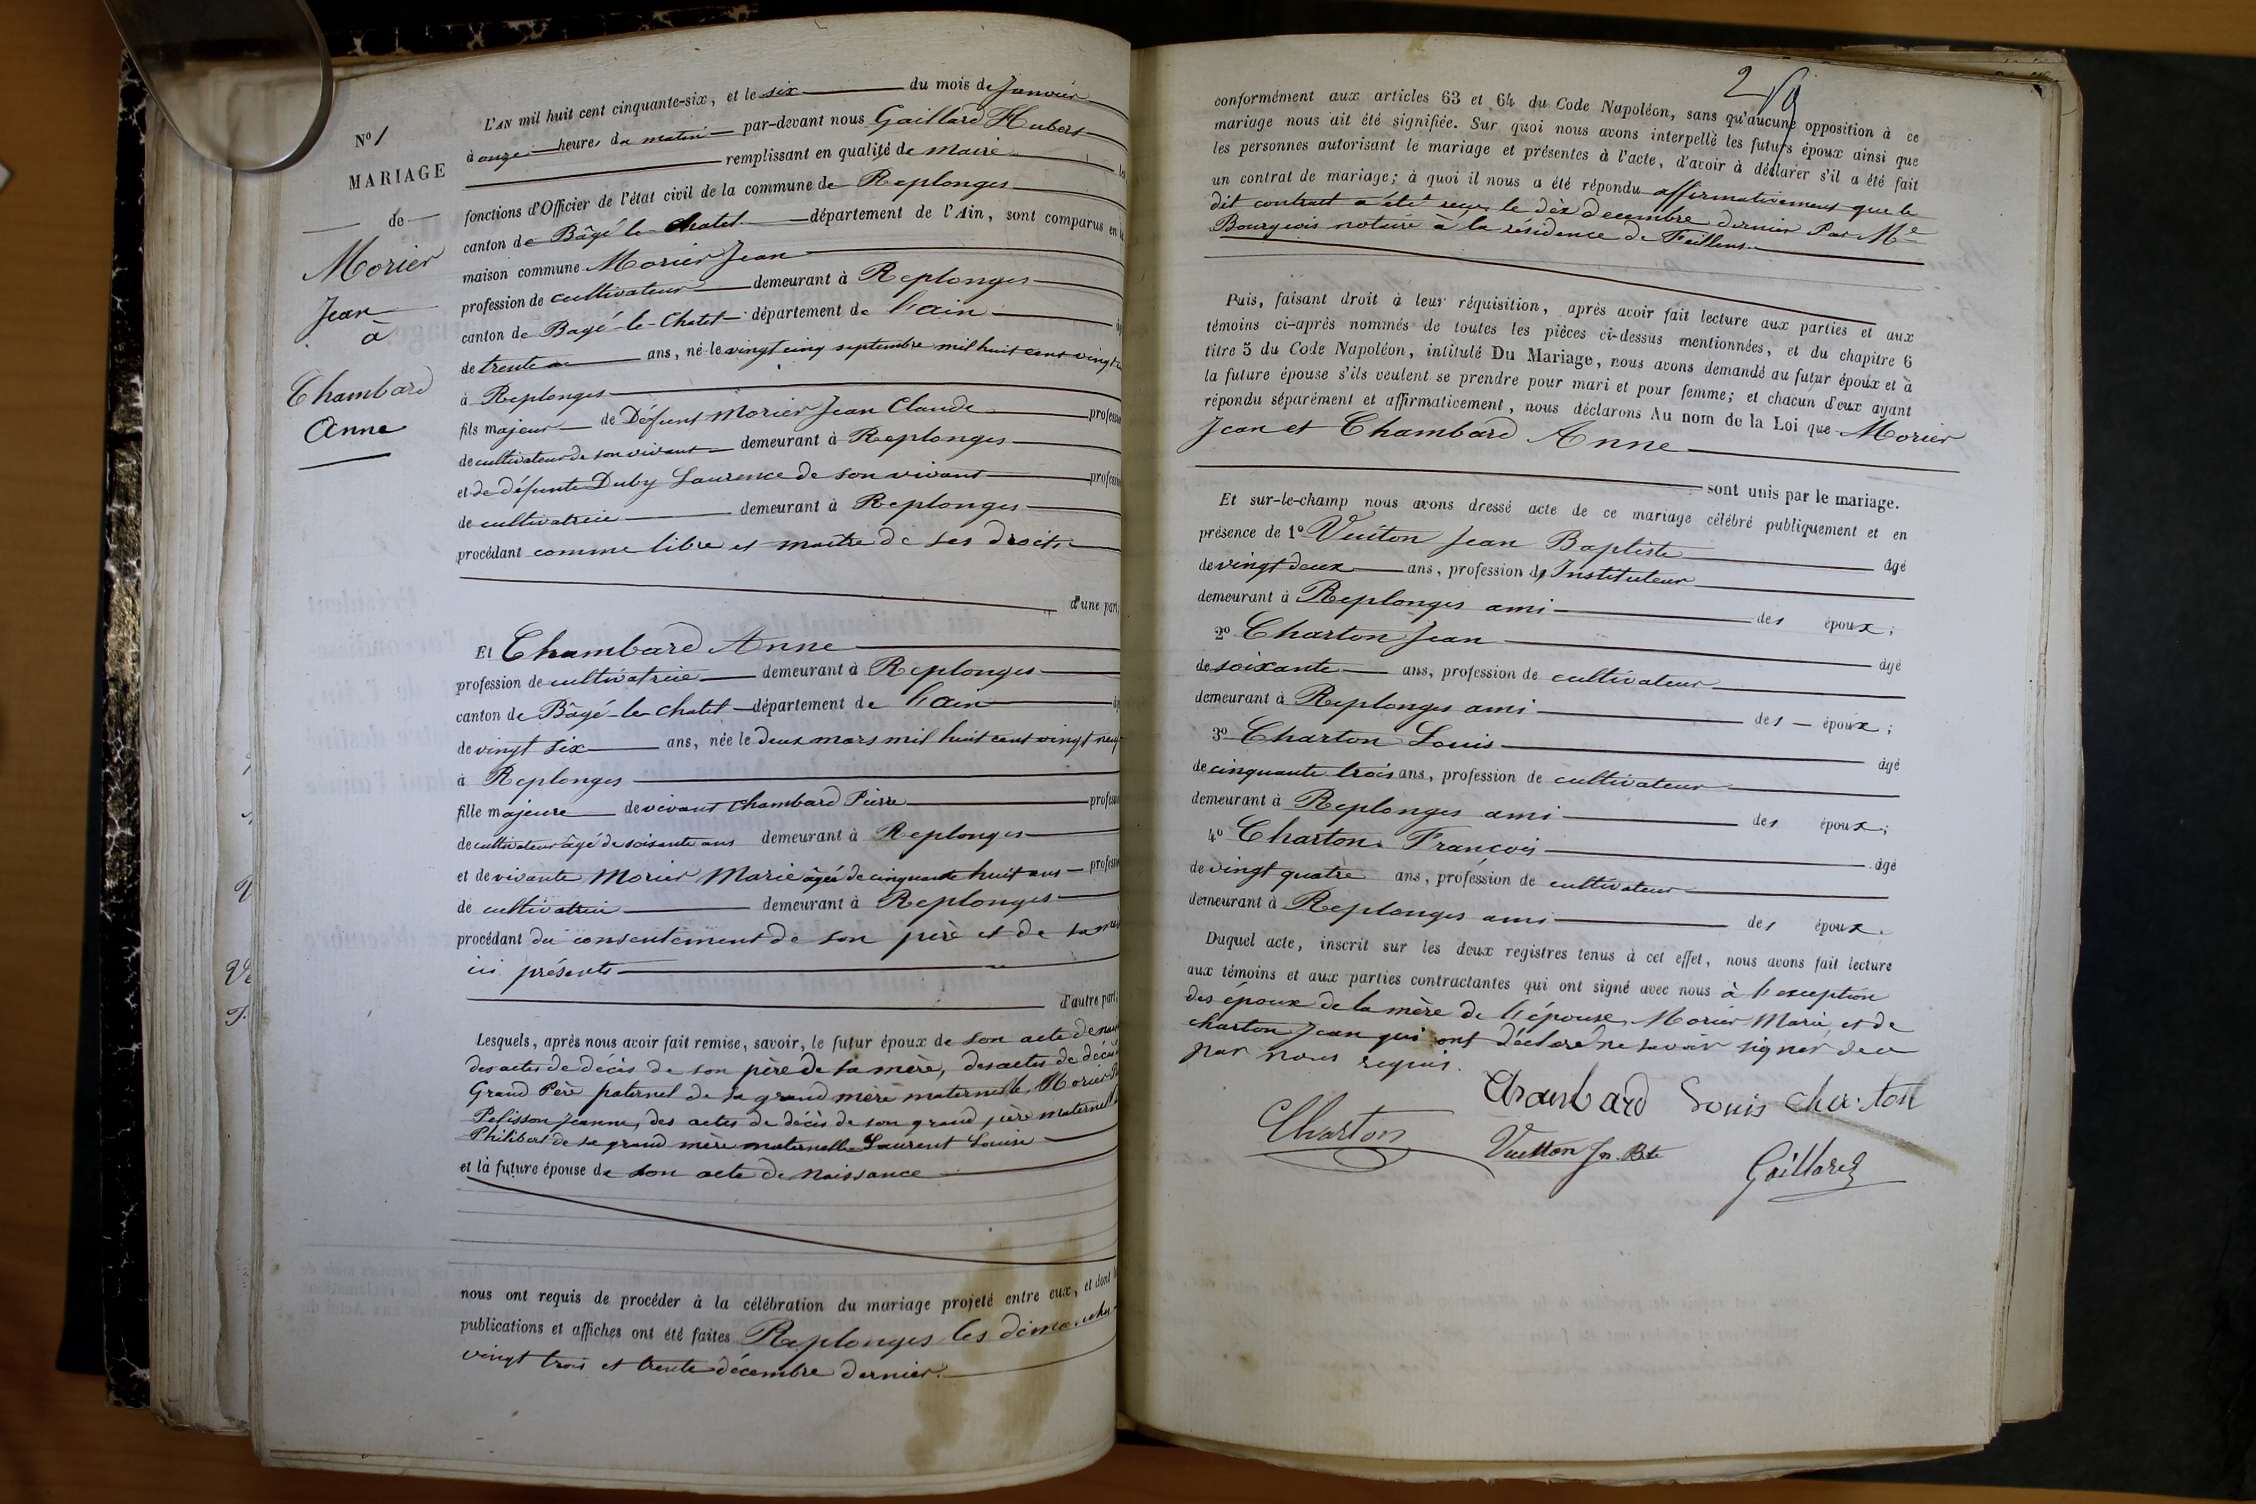 N.º 1
MARIAGE
de
Morier
Jean
à
Chambard
Anne
L'AN mil huit cent cinquante-six, et le six du mois de Janvier
à onze heures du matin par-devant nous Gaillard Hubert
remplissant en qualité de Maire les
fonctions d'Officier de l'état civil de la commune de Replonges
canton de Bâgé-le-Chatel département de l'Ain, sont comparus en la
maison commune Morier Jean
profession de cultivateur demeurant à Replonges
canton de Bagé-le-Chatel département de l'ain
de trente ans, né le vingt cinq septembre mil huit cent vingt
à Replonges
fils majeur de Défunt Morier Jean Claude
de cultivateur de son vivant demeurant à Replonges
et de défunte Duby Laurence de son vivant
de cultivatrice demeurant à Replonges
procédant comme libre et maître de ses droits
d'une part,
Et Chambard Anne
profession de cultivatrice demeurant à Replonges
canton de Bâgé-le-Chatel département de l'ain
de vingt six ans, née le deux mars mil huit cent vingt neuf
à Replonges
fille majeure de vivant Chambard Pierre
de cultivateur âgé de soixante ans demeurant à Replonges
et de vivante Morier Marie âgée de cinquante huit ans
de cultivatrice demeurant à Replonges
procédant du consentement de son père et de sa mère
ici présents
d'autre part,
Lesquels, après nous avoir fait remise, savoir, le futur époux de son acte de
des actes de décès de son père de sa mère, des actes de décès
Grand Père paternel de sa grand mère maternelle, Morier
Pelisson Jeanne, des actes de décès de son grand père maternel
Philibert de sa grand mère maternelle Laurent Louise
et la future épouse de son acte de Naissance
nous ont requis de procéder à la célébration du mariage projeté entre eux, et dont
publications et affiches ont été faites Replonges les dimanches
vingt trois et trente décembre dernier.
conformément aux articles 63 et 64 du Code Napoléon, sans qu'aucune opposition à ce
mariage nous ait été signifiée. Sur quoi nous avons interpellé les futurs époux ainsi que
les personnes autorisant le mariage et présentes à l'acte, d'avoir à déclarer s'il a été fait
un contrat de mariage; à quoi il nous a été répondu affirmativement que le
dit contrat a été reçu le dix decembre dernier Par Me
Bourgeois notaire à la résidence de Feillens
Puis, faisant droit à leur réquisition, après avoir fait lecture aux parties et aux
témoins ci-après nommés de toutes les pièces ci-dessus mentionnées, et du chapitre 6
titre 5 du Code Napoléon, intitulé Du Mariage, nous avons demandé au futur époux et à
la future épouse s'ils veulent se prendre pour mari et pour femme; et chacun d'eux ayant
répondu séparément et affirmativement, nous déclarons Au nom de la Loi que Morier
Jean et Chambard Anne
sont unis par le mariage.
Et sur-le-champ nous avons dressé acte de ce mariage célébré publiquement et en
présence de 1º Vuiton Jean Baptiste âgé
de vingt deux ans, profession d'Instituteur
demeurant à Replonges ami des époux;
2º Charton Jean âgé
de soixante ans, profession de cultivateur
demeurant à Replonges ami des époux;
3º Charton Louis âgé
de cinquante trois ans, profession de cultivateur
demeurant à Replonges ami des époux;
4º Charton François âgé
de vingt quatre ans, profession de cultivateur
demeurant à Replonges ami des époux.
Duquel acte, inscrit sur les deux registres tenus à cet effet, nous avons fait lecture
aux témoins et aux parties contractantes qui ont signé avec nous à l'exception
des époux de la mère de l'épouse, Morier Marie, et de
charton Jean qui ont déclaré ne savoir signer de ce
par nous requis.
Chambard Louis charton
Charton Vuitton Jn Bte
Gaillard